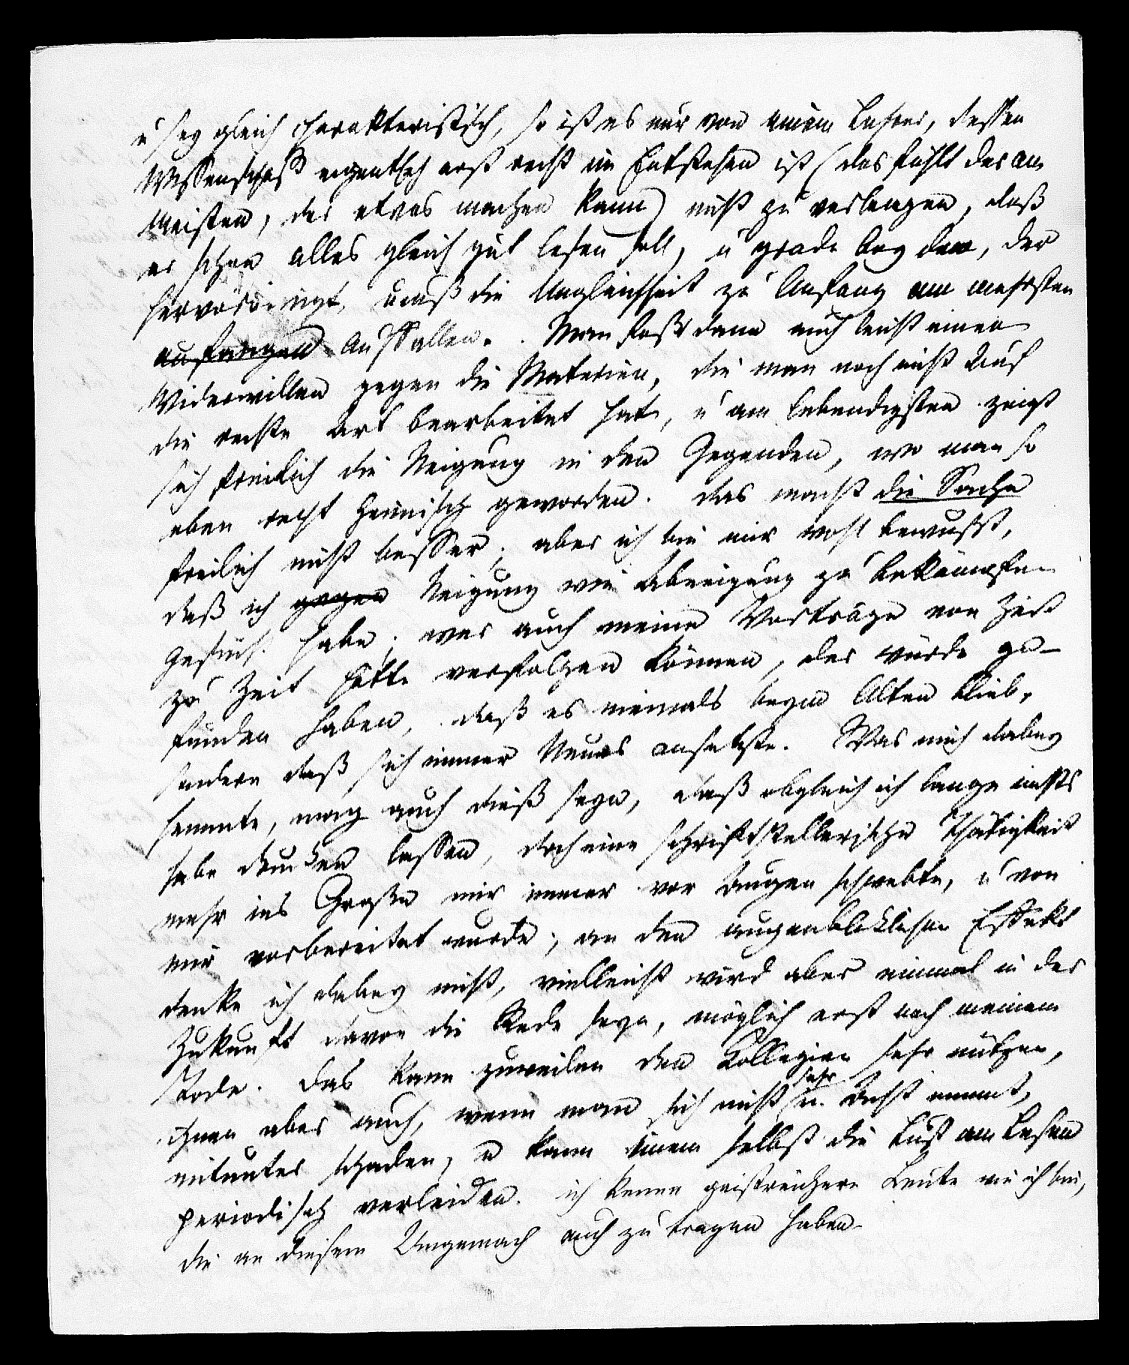 u sey gleich charakteristisch, so ist es nur von einem Lehrer, dessen
Wissenschaft eigentlich erst recht im Entstehen ist (das fühlt der am
Meisten, der etwas machen kann) nicht zu verlangen, daß
er schon alles gleich gut lesen soll, u grade bey dem, der
hervorbringt, muß die Ungleichheit zu Anfang am mehrsten
anfangen auffallen. Man faßt dann auch leicht einen
Widerwillen gegen die Materien, die man noch nicht auf
die rechte Art bearbeitet hat, u am lebendigsten zeigt
sich freilich die Neigung in den Gegenden, wo man so
eben recht heimisch geworden. das macht die Sache
freilich nicht besser; aber ich bin mir wohl bewußt,
daß ich gegen Neigung wie Abneigung zu bekämpfen
gesucht habe; wer auch meine Vorträge von Zeit
zu Zeit hätte verfolgen können, der würde ge-
funden haben, daß es niemals beym Alten blieb,
sondern daß sich immer Neues ansetzte. Was mich dabey
hemmte, mag auch dieß seyn, daß obgleich ich lange nichts
habe drucken lassen, doch eine schriftstellerische Thätigkeit
mehr ins Große mir immer vor Augen schwebte, u von
mir vorbereitet wurde; an den augenblicklichen Effekt
denke ich dabey nicht, vielleicht wird aber einmal in der
Zukunft davon die Rede seyn, möglich erst nach meinem
Tode. Das kann zuweilen den Collegien sehr nützen,
ihnen aber auch, wenn man sich nicht sehr in Acht nimmt,
mitunter schaden, u kann einem selbst die Lust am Lesen
periodisch verleiden. ich kenne geistreichere Leute wie ich bin,
die an diesem Ungemach auch zu tragen haben